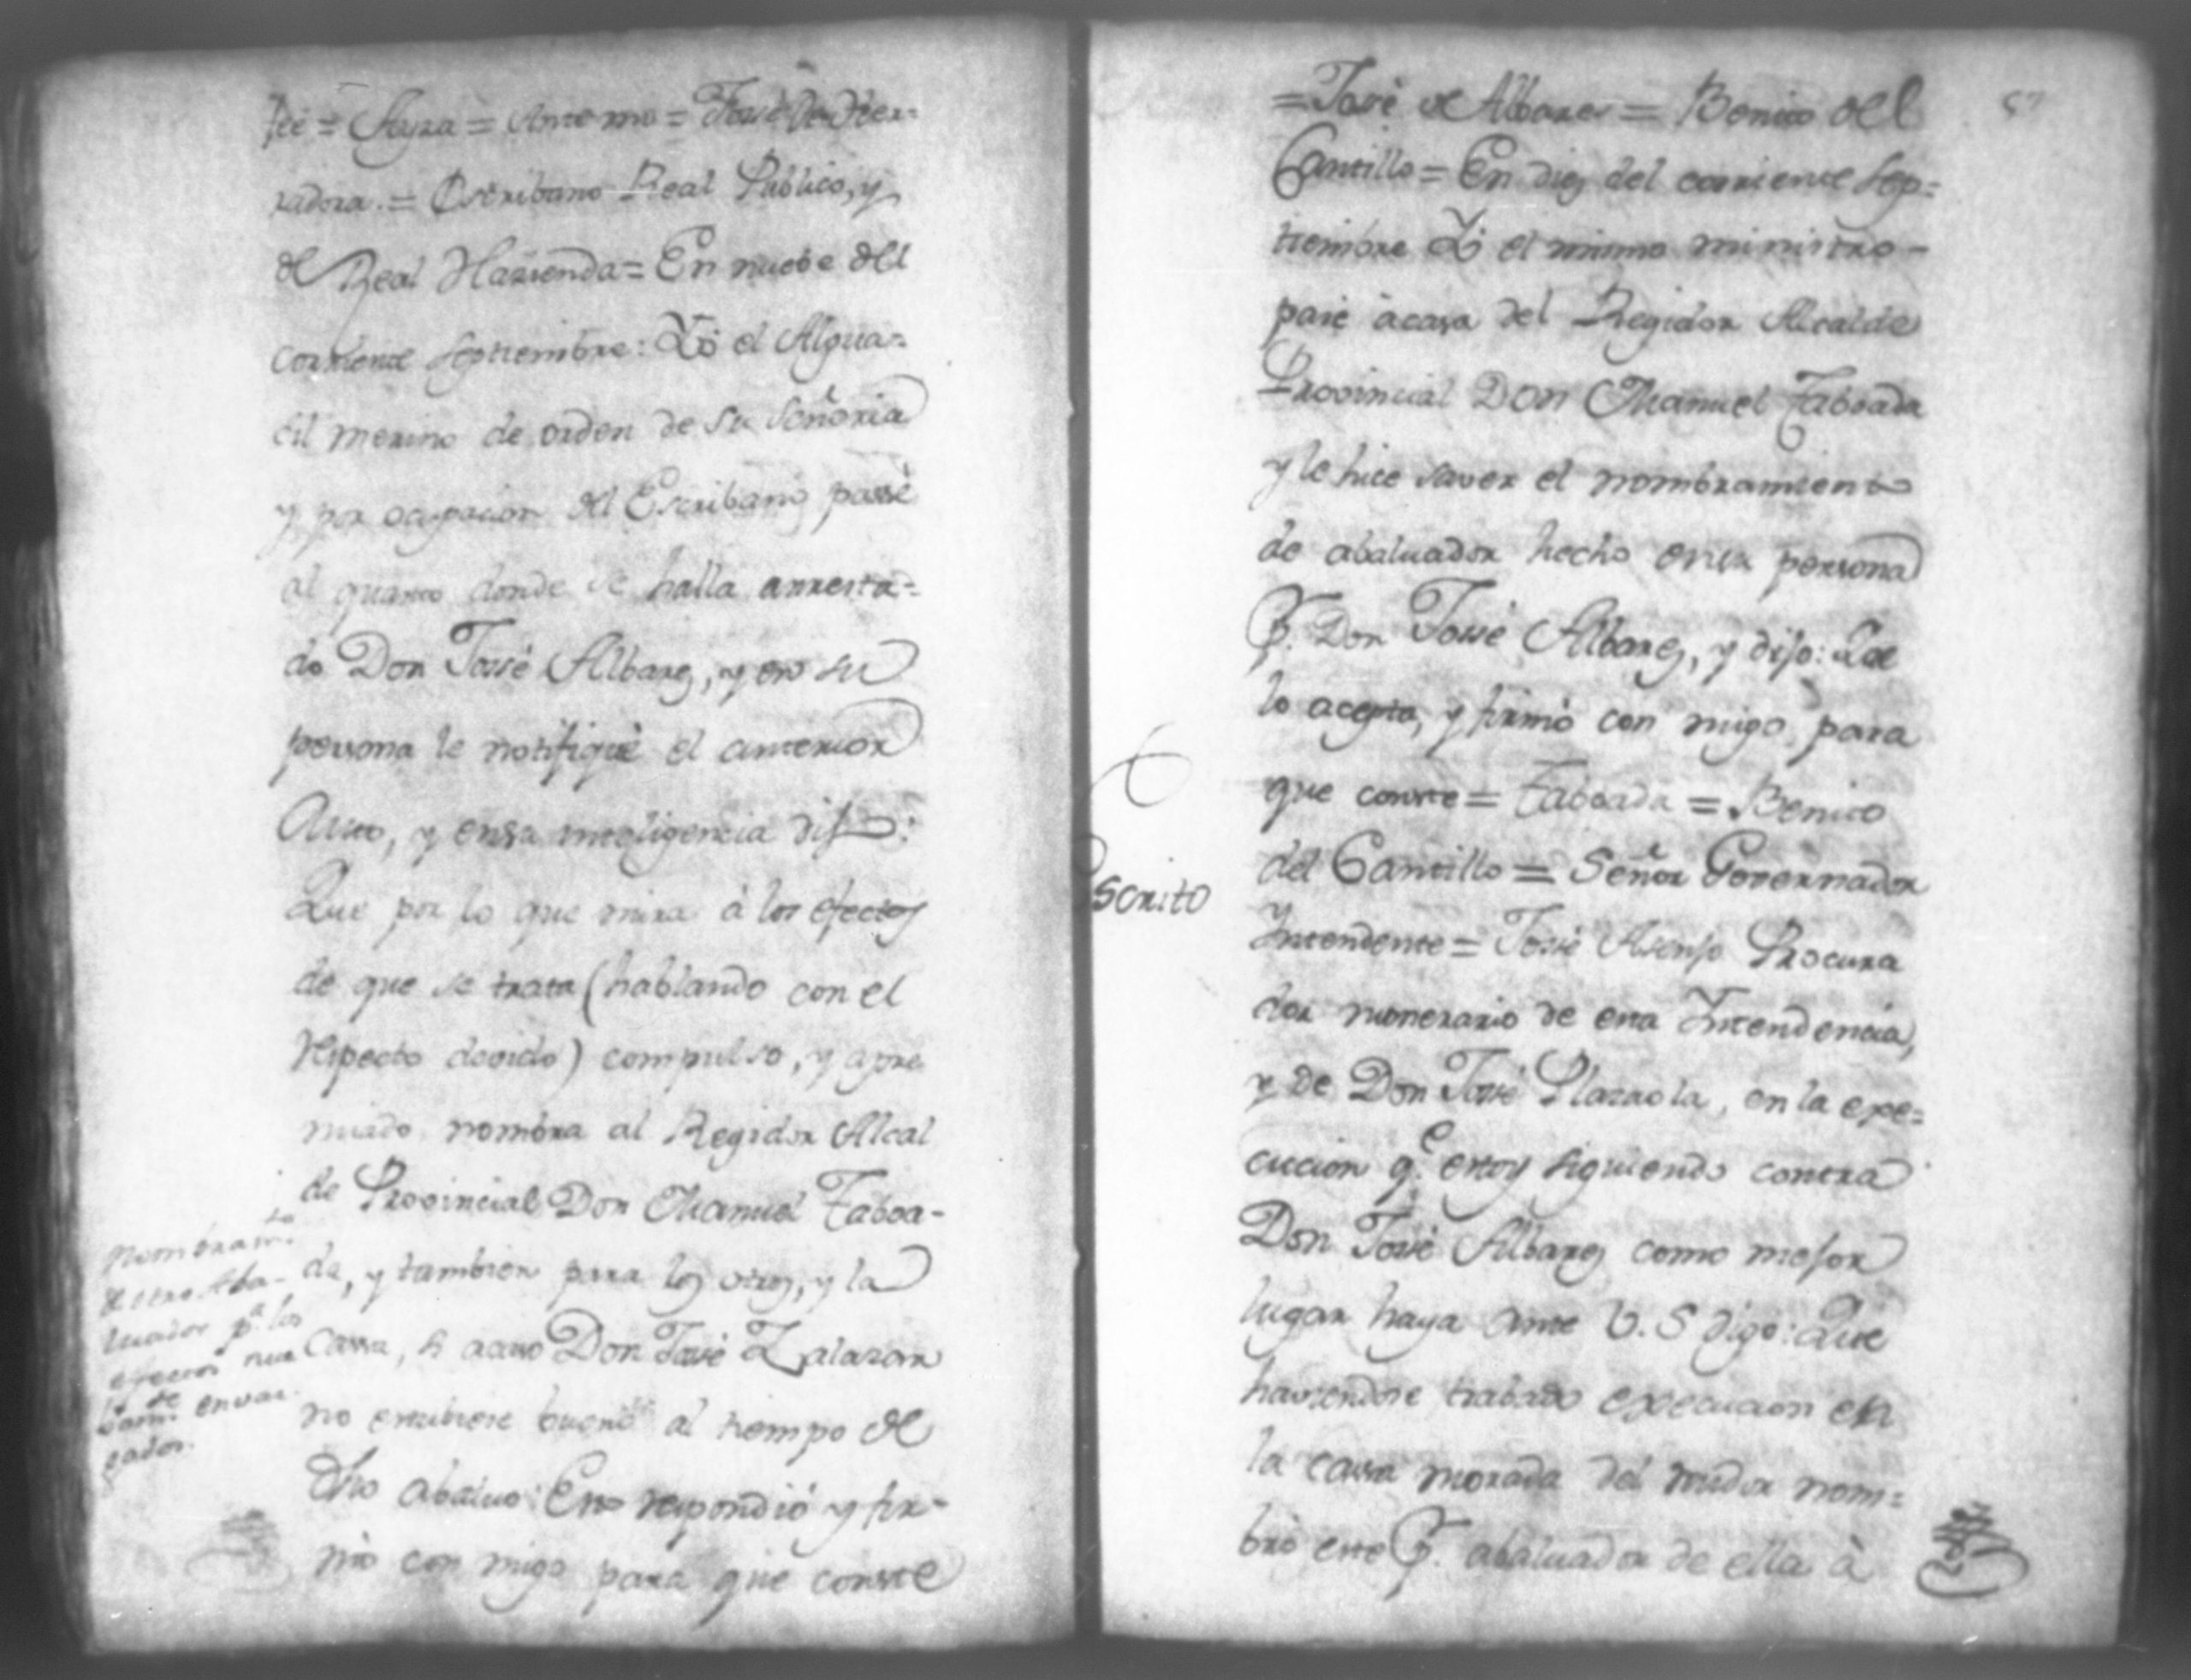 feé = Azara = Ante mi = José de Her-
radora. = Escribano Real Publico, y
de Real Hazienda = En nuebe del
corriente septiembre: Yó el Algua-
cil merino de orden de su señoria
y por ocupacion del Escribano passé
al quarto donde se halla arresta-
do Don José Albarez, y en su
persona le notifiqué el anterior
Auto, y ensu inteligencia dijo:
Que por lo que mira á los efectos
de que se trata (hablando con el
respecto devido) compulso, y apre
miado nombra al Regidor Alcal
de Provincial Don Manuel Taboa-
da, y tambien para los otros, y la
Cassa, si acaso Don José Zalazar
no estubiere bueno al tiempo de
dho abaluo: Esto respondió y fir-
mó con migo para que conste
Nombram.to
de otro Aba-
luador p.a los
efectos nue
bam.te envar-
gados.
57
= José de Albarez = Benito del
Cantillo = En diez del corriente sep-
tiembre Yó el mismo ministro -
pasé ácasa del Regidor Alcalde
Provincial Don Manuel Taboada
y le hice saver el nombramiento
de abaluador hecho ensu persona
P. Don José Albarez, y dijo: Que
lo acepta, y firmó con migo para
que conste = Taboada = Benito
del Cantillo = Señor Governador
Escrito
Intendente = José Asenjo Procura
dor numerario de esta Intendencia,
y de Don José Plazaola, en la exe-
cucion q.e estoy siguiendo contra
Don José Albarez como mejor
lugar haya ante V.S digo: Que
haviendose trabado execucion en
la cassa morada del nudor nom-
bró este P. abaluador de ella à